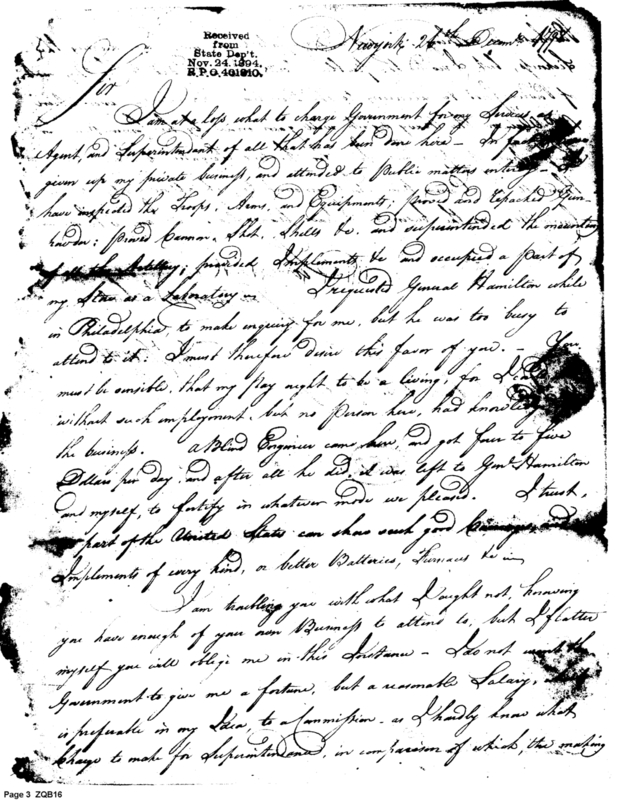 Received
from
State Dep't.
Nov. 24. 1894.
R.P.O. 401910.
Newyork 26th Decemr. 1798
Sir
I am at a loss what to charge Government for my Services as
Agent, and Superintendant of all that has been done here - In fact
given up my private business, and attended to Public matters entirely -
have inspected the Troops, Arms, and Equipments, proved and repacked Gun-
powder; proved Cannon, Shot, Shells &c. and superintended the mounting
of all the Artillery; provided Implements &c and occupied a part of
my Store as a Laboratory - I requested General Hamilton while
in Philadelphia, to make enquiry for me, but he was too busy to
attend to it. I must therefore desire this favor of you. - You
must be sensible, that my pay ought to be a living, for I
without such employment, but no Person here, had knowledge
the business. A Blind Engineer came here, and got four to five
Dollars per day, and after all he did, it was left to Genl. Hamilton
and myself, to fortify in whatever mode we pleased. I trust,
part of the United States can show such good Carriages and
Implements of every kind, or better Batteries, Furnaces &c -
I am troubling you with what I ought not, knowing
you have enough of your own Business to attend to, but I flatter
myself you will oblige me in this Instance - I do not want the
Government to give me a fortune, but a reasonable Salary,
is preferable in my Idea, to a Commission - as I hardly know what
Charge to make for Superintendence, in comparison of which, the making
Page 3 ZQB16